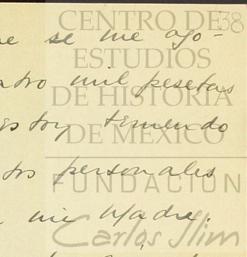 CENTRO DE 38
e se me ago-
ESTUDIOS
atro mil pesetas
DE HISTORIA
estoy temendo
DE MÉXICO
tos personales
FUNDACIÓN
mi Madre.
Carlos Slim